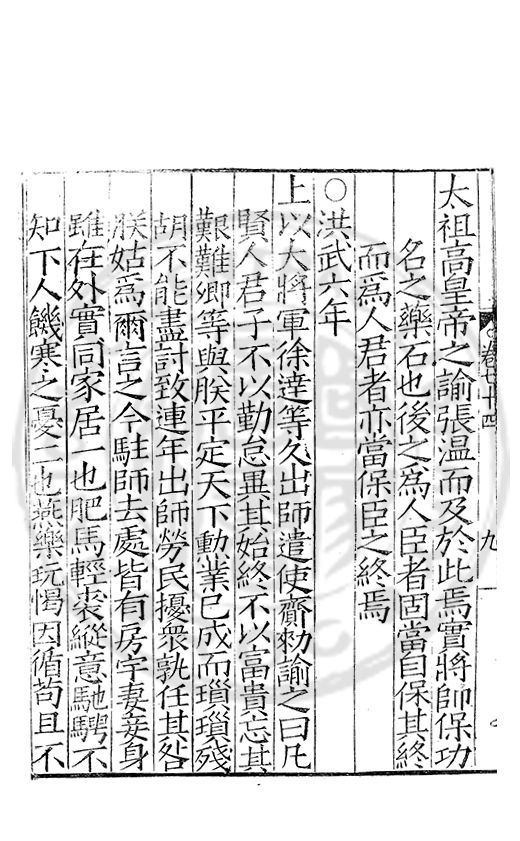 卷七十四 九
太祖高皇帝之諭張溫而及於此焉實將帥保功
名之藥石也後之為人臣者固當自保其終
而為人君者亦當保臣之終焉
○洪武六年
上以大將軍徐達等久出師遣使齎勑諭之曰凡
賢人君子不以勤怠異其始終不以富貴忘其
艱難卿等與朕平定天下勳業已成而瑣瑣殘
胡不能盡討致連年出師勞民擾衆孰任其咎
朕姑為爾言之今駐師去處皆有房宇妻妾身
雖在外實同家居一也肥馬輕裘縱意馳騁不
知下人饑寒之憂二也燕樂玩愒因循苟且不